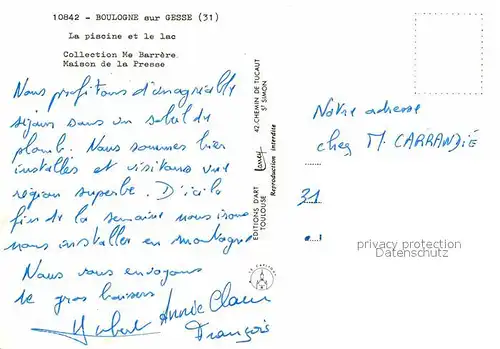 10842 - BOULOGNE sur GESSE (31)
La piscine et le lac
Collection Me Barrère
Maison de la Presse
Nous profitons d'un agréable
séjour sous un soleil de
plomb. Nous sommes bien
installés et visitons une
région superbe. D'ici la
fin de la semaine nous irons
nous installer en montagne
Nous vous envoyons
de gros baisers
Hubert Annie Claire
François
EDITIONS D'ART
TOULOUSE
Larrey
Reproduction interdite
42, CHEMIN DE TUCAUT
ST SIMON
Notre adresse
chez M. CARRANDIÉ
31
privacy protection
Datenschutz